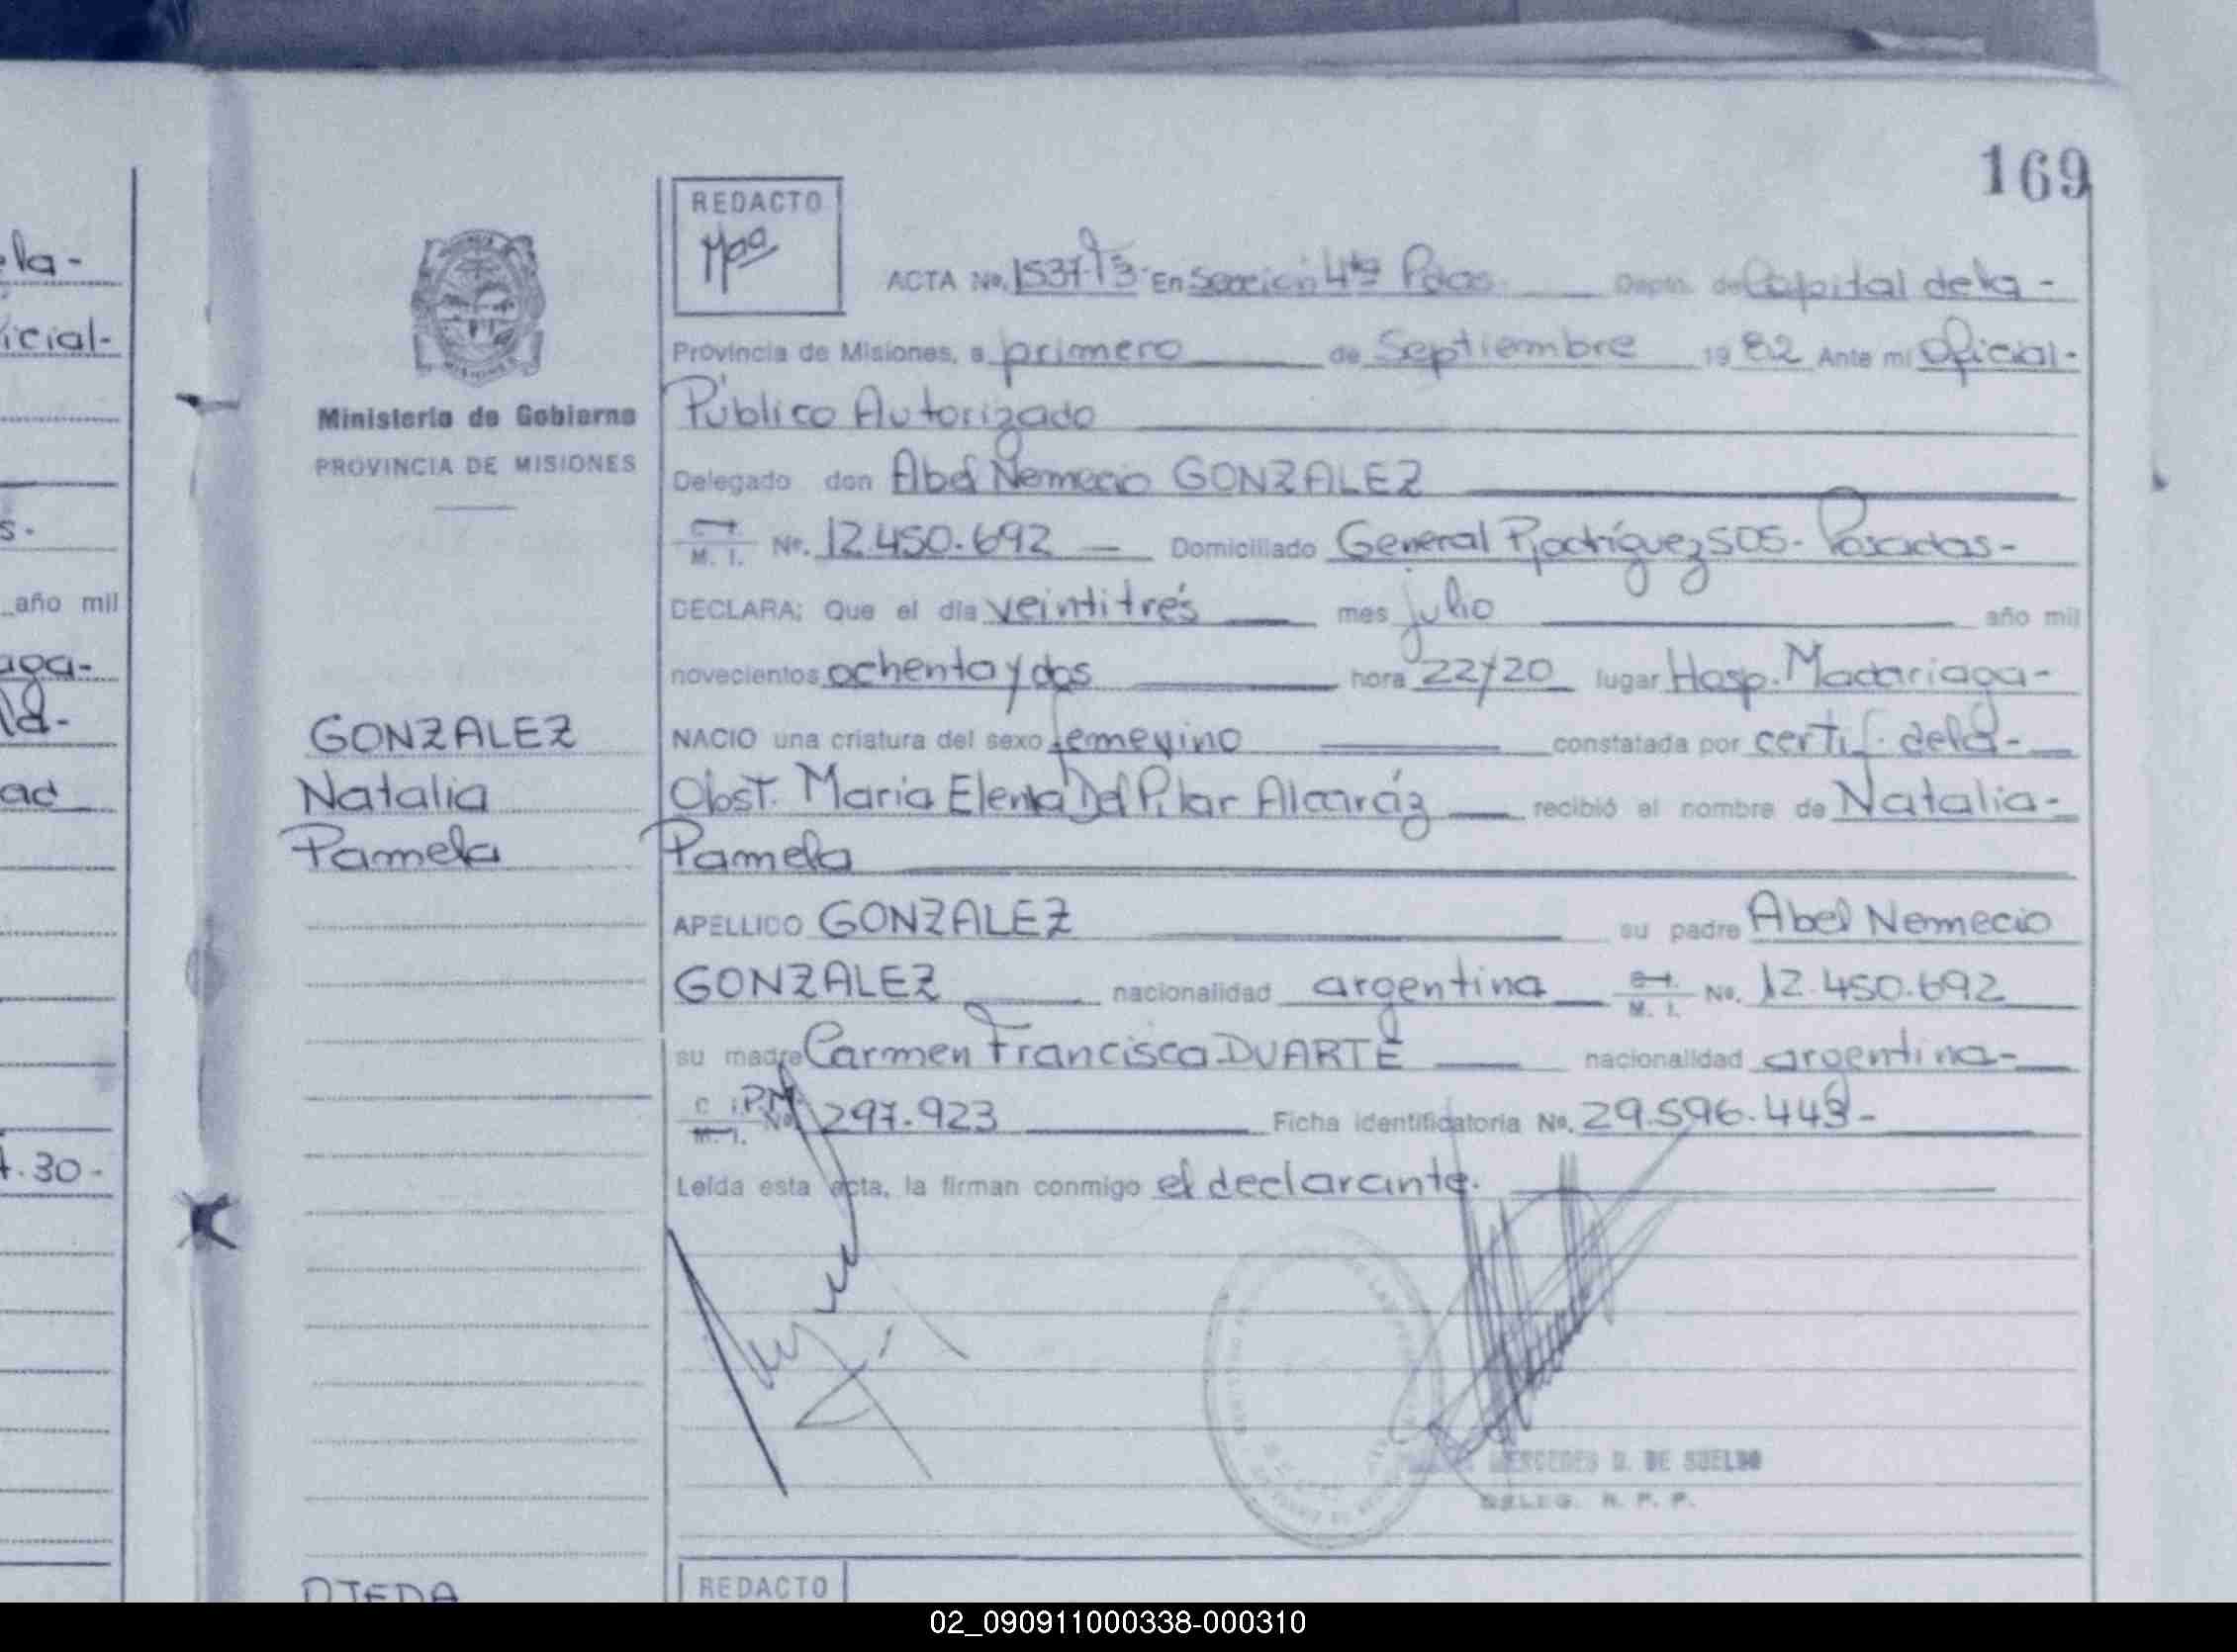 169
REDACTO
ACTA No. 1537-T3- En Sección 4ta Pdas. Dpto. de Capital de la -
Provincia de Misiones, a primero de Septiembre 19 82 Ante mi Oficial-
Público Autorizado
Delegado don Abel Nemecio GONZALEZ
C. I.
M. I. No. 12.450.692 Domiciliado General Rodríguez 505- Posadas-
DECLARA: Que el día veintitrés mes julio año mil
novecientos ochenta y dos hora 22y20 lugar Hosp. Madariaga-
NACIO una criatura del sexo femenino constatada por certif. de la-
Obst. Maria Elena Del Pilar Alcaráz recibió el nombre de Natalia-
Pamela
APELLIDO GONZALEZ su padre Abel Nemecio
GONZALEZ nacionalidad argentina M. I. No. 12.450.692
su madre Carmen Francisca DUARTE nacionalidad argentina-
C. I. P.M.
M. I. No. 297.923 Ficha identificatoria No. 29.596.443-
Leída esta acta, la firman conmigo el declarante.
MERCEDES D. DE SUELDO
DELEG. R. P. P.
REDACTO
Ministerio de Gobierno
PROVINCIA DE MISIONES
GONZALEZ
Natalia
Pamela
OJEDA
ela-
icial-
s.
año mil
aga-
la-
ad
30-
02_090911000338-000310